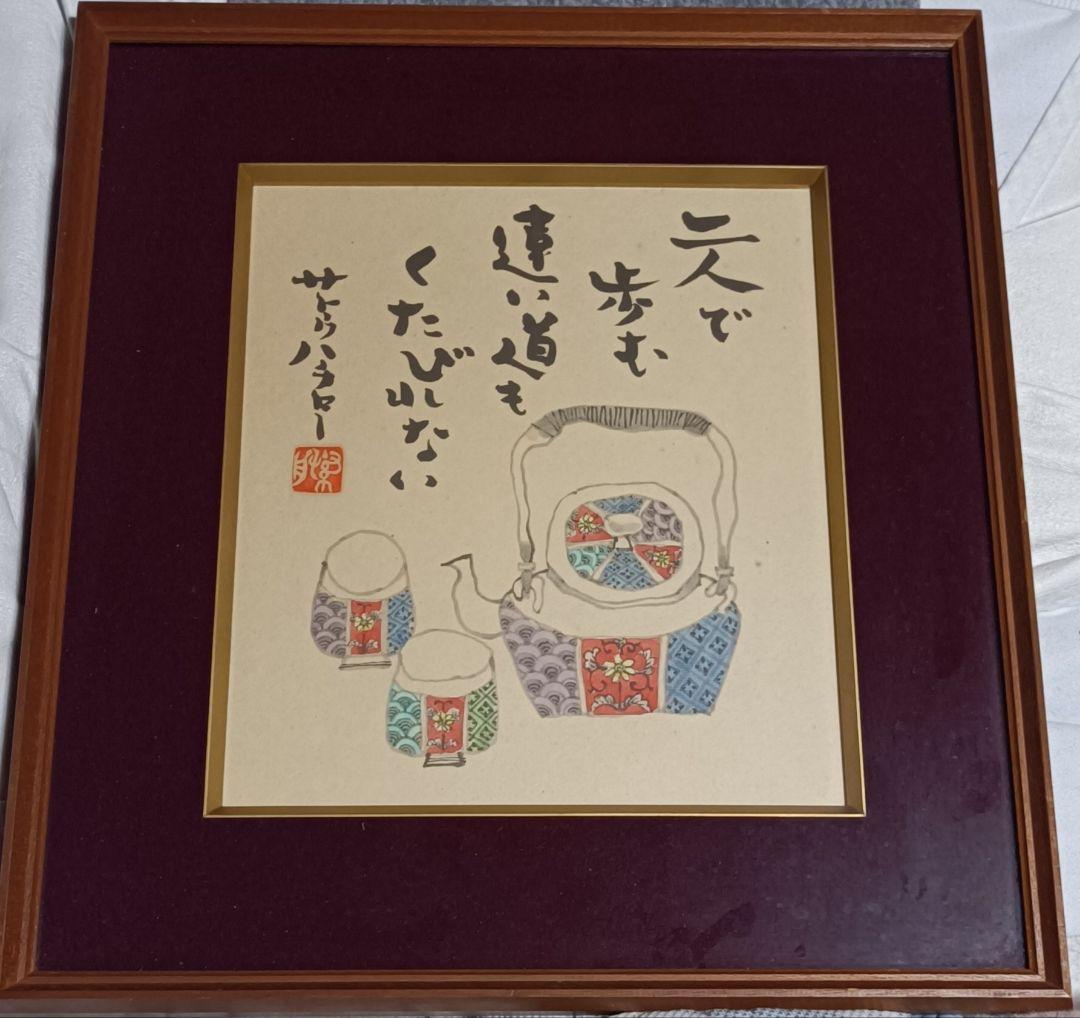 二人で
歩む
遠い道も
くたびれない
サトウハチロー